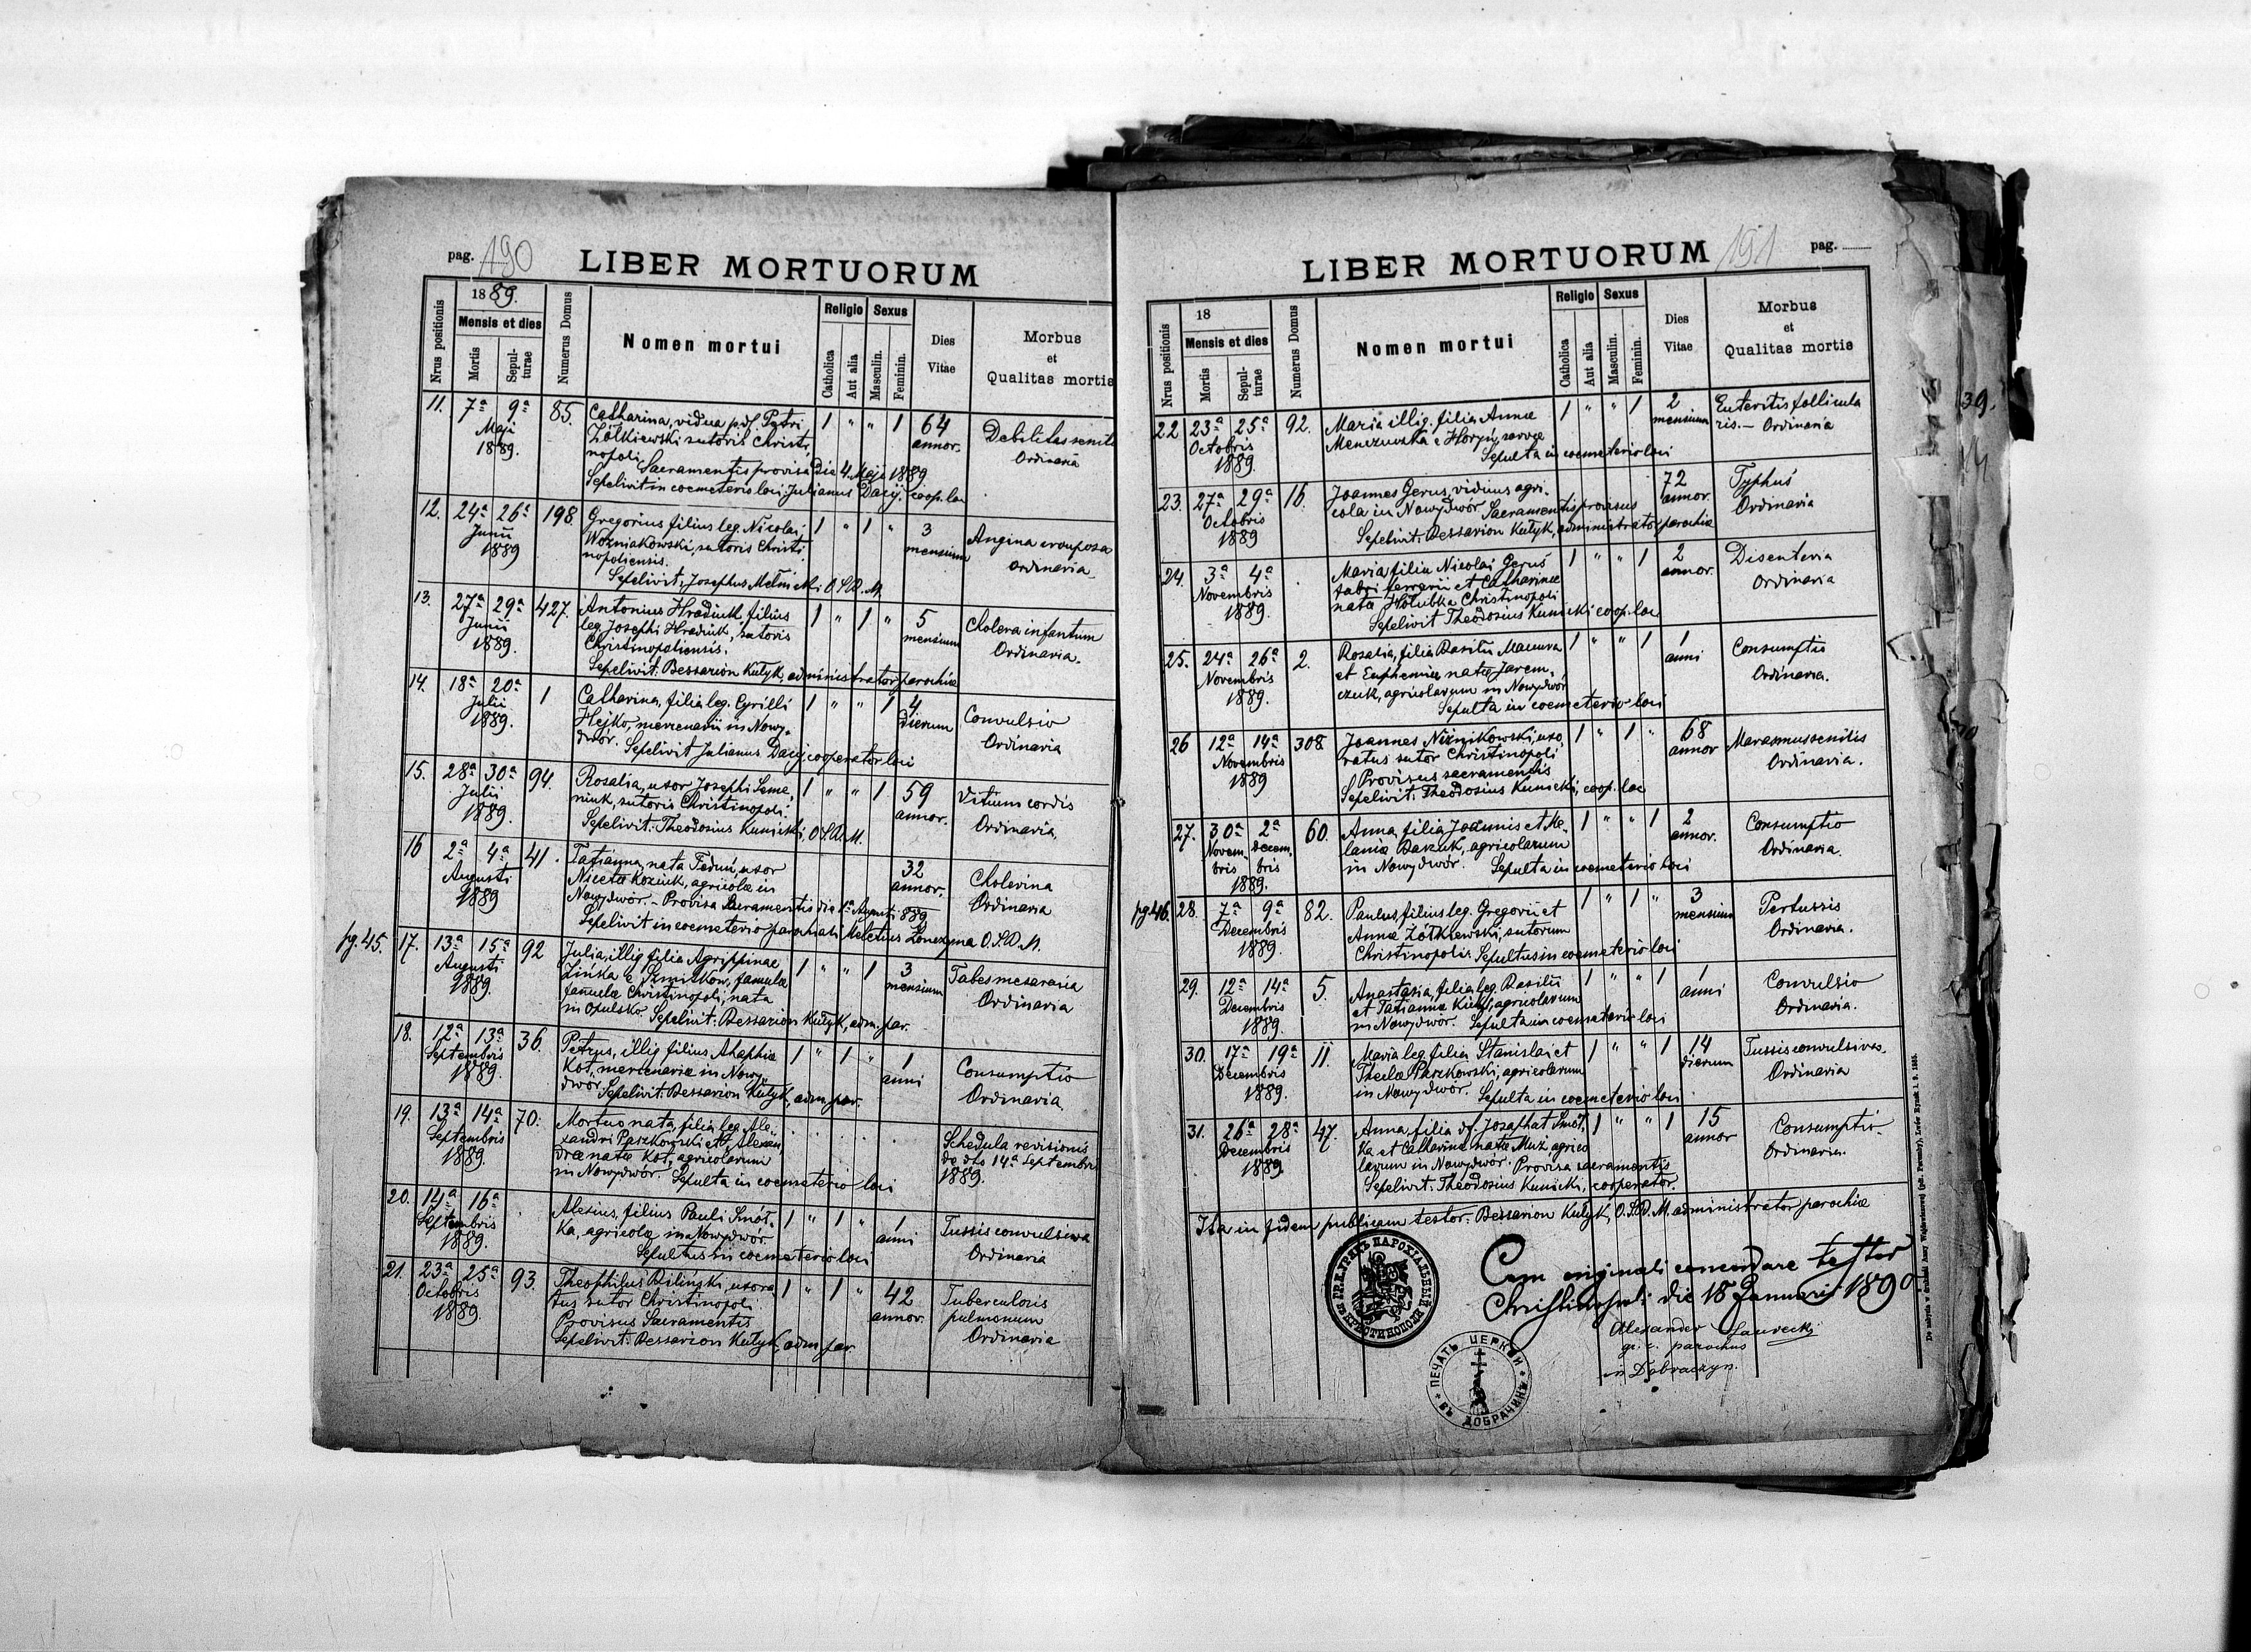 pag. 190
LIBER MORTUORUM
Nrus positionis
1889.
Mensis et dies
Mortis
Sepulturae
Numerus Domus
Nomen mortui
Religio
Catholica
Aut alia
Sexus
Masculin.
Feminin.
Dies Vitae
Morbus et Qualitas mortis
11. 7ª 9ª Maji 1889. 85. Catharina, vidua p.def. Petri 1 " " 1 64 annor. Debilitas senilis Ordinaria
Żółkiewski sutoris Christi,
nopoli, Sacramentis provisa die 4 Maja 1889
Sepelivit in coemeterio loci Julianus Dacij. coop. loc
12. 24ª 26ª Junii 1889 198. Gregorius filius leg. Nicolai 1 " 1 " 3 mensium Angina crouposa ordinaria
Wozniakowski, sutoris Christi
nopoliensis.
Sepelivit, Josephus Melnicki O.S.B.M.
13. 27ª 29ª Junii 1889. 427. Antonius Hradiuk filius 1 " 1 " 5 mensium Cholera infantum Ordinaria.
leg. Josephi Hradiuk, sutoris
Christinopoliensis.
Sepelivit: Bessarion Kułyk, administrator parochiæ
14. 18ª 20ª Julii 1889. 1 Catharina, filia leg. Cyrilli 1 " " 1 4 dierum Convulsio Ordinaria
Hejko, mercenarii in Nowy-
dwór. Sepelivit Julianus Dacij cooperator loci
15. 28ª 30ª Julii 1889. 94. Rosalia, uxor Josephi Seme, 1 " " 1 59 annor. Vitium cordis Ordinaria,
niuk, sutoris Christinopoli.
Sepelivit: Theodosius Kunicki, O.S.B.M.
16 2ª 4ª Augusti 1889 41. Tatianna, nata Feduń, uxor 32 annor. Cholerina Ordinaria
Nicetæ Koziuk, agricolæ in
Nowydwór. – Provisa Sacramentis die 1ª Augusti 889
Sepelivit in coemeterio parochiali Meletius Łonczyna O.S.B.M.
pg. 45. 17. 13ª 15ª Augusti 1889. 92 Julia, illig. filia Agrippinae 1 " " 1 3 mensium Tabes mesaraica Ordinaria
Zińka e Szmitkow, famulæ
famulæ Christinopoli, nata
in Opulsko. Sepelivit: Bessarion Kułyk, adm. par.
18. 12ª 13ª Septembris 1889. 36. Petrus, illig filius Ahaphiæ 1 " 1 " 1 anni Consumptio Ordinaria,
Kot, mercenariæ in Nowy
dwór. Sepelivit: Bessarion Kułyk, adm. par.
19. 13ª 14ª Septembris 1889. 70. Mortuo nata, filia leg. Ale, Schedula revisionis
xandri Paszkowski et Alexan, do dto 14ª Septembris
dræ natæ Kot, agricolarum 1889.
in Nowydwór. Sepulta in coemeterio loci
20. 14ª 16ª Septembris 1889. Alexius, filius Pauli Smół- 1 " 1 " 1 anni Tussis convulsiva Ordinaria
ka, agricolæ in Nowydwór.
Sepultus in coemeterio loci
21. 23ª 25ª Octobris 1889. 93. Theophilus Biliński, uxora 1 " 1 " 42 annor. Tuberculosis pulmonum Ordinaria
tus sutor Christinopoli
Provisus Sacramentis
Sepelivit: Bessarion Kułyk, adm. par.
191 pag.
LIBER MORTUORUM
Nrus positionis
18
Mensis et dies
Mortis
Sepulturae
Numerus Domus
Nomen mortui
Religio
Catholica
Aut alia
Sexus
Masculin.
Feminin.
Dies Vitae
Morbus et Qualitas mortis
22 23ª 25ª Octobris 1889. 92. Maria illig. filia Annæ 1 " " 1 2 mensium Enteritis follicula
ris. – Ordinaria
Sepulta in coemeterio loci
23. 27ª 29ª Octobris 1889 16. Joannes Gerus, viduus agri- 72 annor. Typhus Ordinaria
cola in Nowydwór Sacramentis provisus
Sepelivit: Bessarion Kułyk, administrator parochiæ
24. 3ª 4ª Novembris 1889. Maria, filia Nicolai Gerus 1 " " 1 2 annor. Disenteria Ordinaria
fabri ferrarii et Catharinæ
nata Hołubka Christinopoli
Sepelivit Theodosius Kunicki coop. loc
25. 24ª 26ª Novembris 1889. 2. Rosalia, filia Basilii 1 " " 1 1 anni Consumptio Ordinaria.
et Euphemiæ natæ Jarem,
czuk, agricolarum in Nowydwór
Sepulta in coemeterio loci
26 12ª 14ª Novembris 1889 308. Joannes Niznikowski, uxo, 1 " 1 " 68 annor Marasmus senilis Ordinaria.
ratus sutor Christinopoli
Provisus sacramentis
Sepelivit: Theodosius Kunicki, coop. loc
27. 30ª Novembris 2ª decembris 1889. 60. Anna, filia Joannis et Me, 1 " " 1 2 annor. Consumptio Ordinaria.
laniæ Baszuk, agricolarum
in Nowydwór. Sepulta in coemeterio loci
pg. 46. 28. 7ª 9ª Decembris 1889. 82. Paulus, filius leg. Gregorii et 1 " 1 " 3 mensium Pertussis Ordinaria.
Annæ Żółkiewski, sutorum
Christinopolis Sepultus in coemeterio loci
29. 12ª 14ª Decembris 1889. 5. Anastasia, filia leg. Basilii 1 " " 1 1 anni Convulsio Ordinaria.
et Tatiannæ agricolarum
in Nowydwór. Sepulta in coemeterio loci
30. 17ª 19ª Decembris 1889. 11. Maria leg. filia Stanislai et 1 " " 1 14 dierum Tussis convulsivas. Ordinaria
Theclæ Paszkowski, agricolarum
in Nowydwór. Sepulta in coemeterio loci
31. 26ª 28ª Decembris 1889. 47. Anna, filia df. Josaphat Smoł, 1 " " 1 15 annor Consumptio. Ordinaria.
ka et Catharinæ natæ Muż agrico
larum in Nowydwór. Provisa sacramentis
Sepelivit: Theodosius Kunicki, cooperator.
Ita in fidem publicam testor: Bessarion Kułyk, O.S.B.M. administrator parochiæ
Cum originali concordare testor
Christinopoli die 18 Januarii 1890
Alexander Laurecki
gr. c. parochus
in Dobraczyn.
ПЕЧАТЬ ЦЕРКВИ ВЪ ДОБРАЧИНѢ
39.